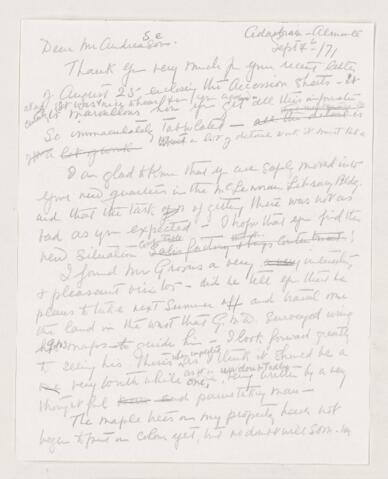 Cedarbrae - Almonte
Sept 4th /71
Dear Mr Andreassen.
Thank you very much for your recent letter
of August 25th enclosing the Accession Sheets - It
was nice to hear from you again
marvellous how you get all this information
So immaculately tabulated - all the detail is
What a lot of detail and it must take
a lot of work
I am glad to know that you are safely moved into
your new quarters in the McLennan Library Bldg.
and that the task of getting there was not as
bad as you expected - I hope that you find the
new situation satisfactory & contentment!
I found Mr a very interesting
& pleasant visitor - did he tell you that he
plans to take next summer off and travel over
the land in the west that G.M.D. surveyed using
his maps to guide him - I look forward greatly
to seeing his Thesis as I think it should be a
very worth while one, being written by a very
thoughtful and painstaking man -
The maple trees on my property have not
begun to put on colour yet, but no doubt will soon - We